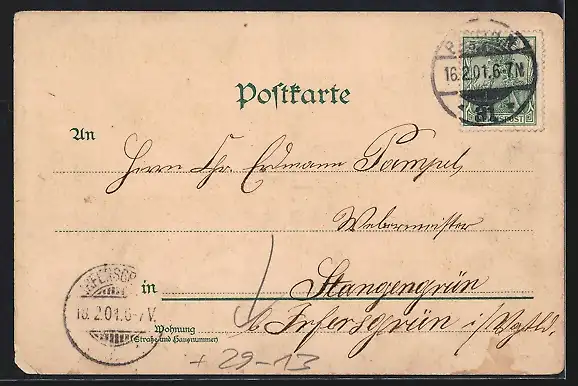 16.2.01.6-7N
Postkarte
An
Herrn Chr. Erdmann Pampel,
Webermeister
in Stangengrün
b. Irfersgrün i/Vgtld.
IRFERSGR
18.2.01.6-7V.
Wohnung
(Straße und Hausnummer)
+ 29-13